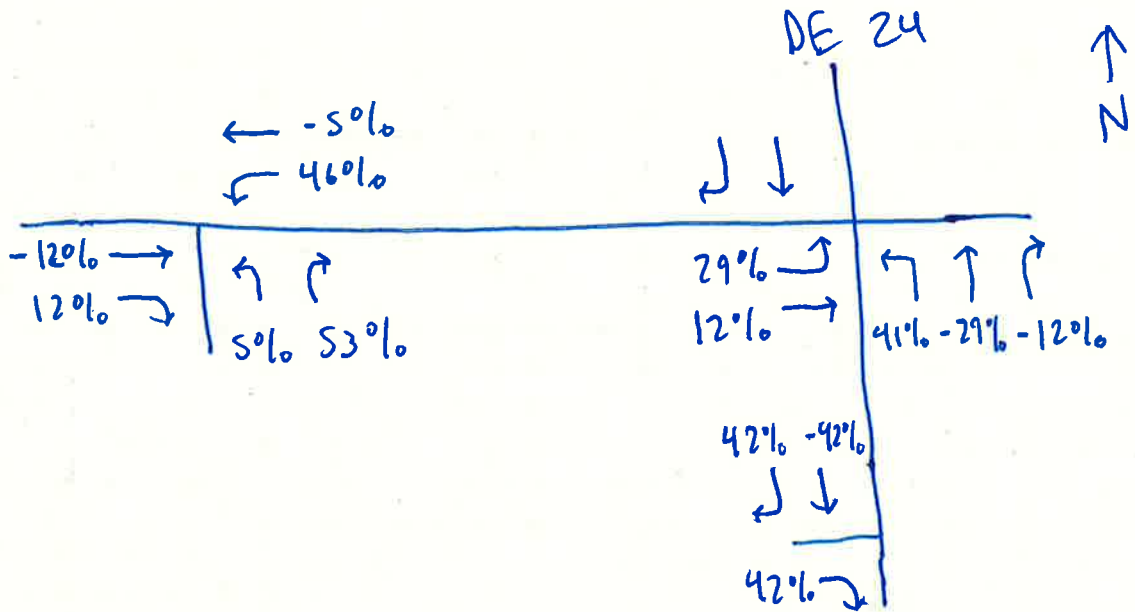 DE 24
N
-5%
46%
-12%
12%
5% 53%
29%
12%
41% -29% -12%
42% -42%
42%